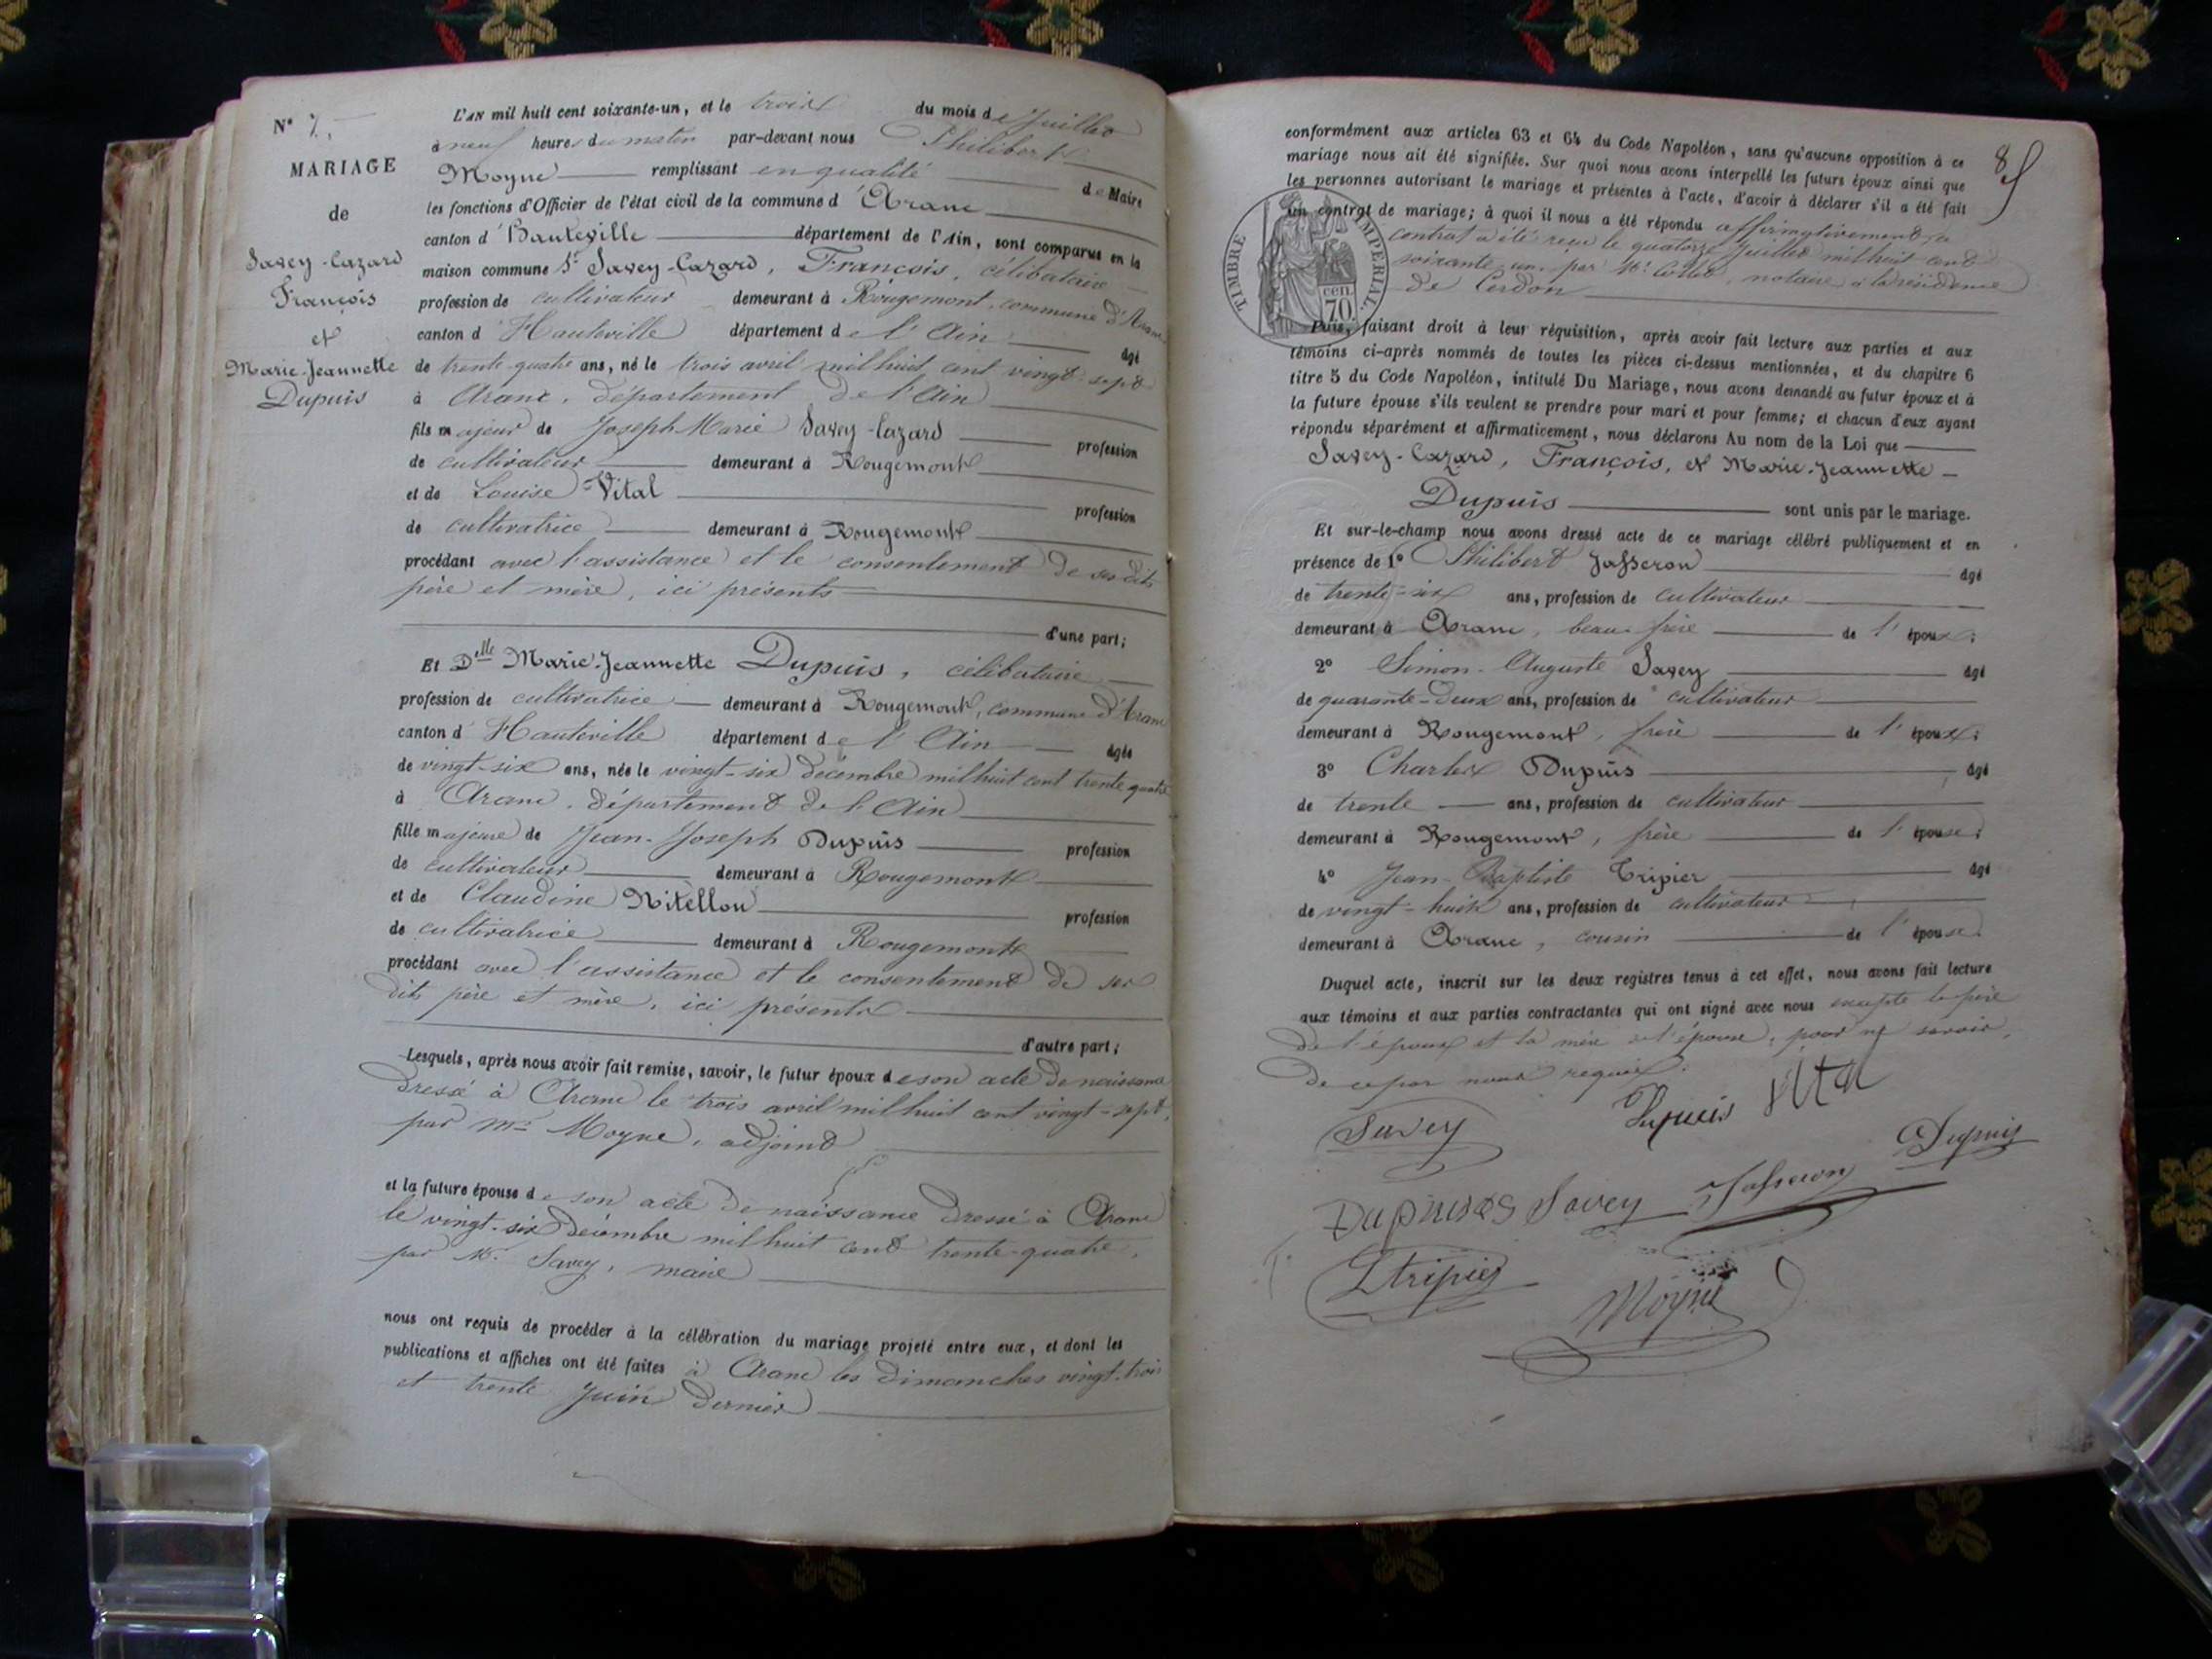 N° 7.
MARIAGE
de
Savey-Cazard
François
et
Marie-Jeannette
Dupuis
L'AN mil huit cent soixante-un, et le trois du mois de Juillet
à neuf heures du matin par-devant nous Philibert
Moyne remplissant en qualité de Maire
les fonctions d'Officier de l'état civil de la commune d'Aranc
canton d'Hauteville département de l'Ain, sont comparus en la
maison commune Sr Savey-Cazard, François, célibataire
profession de cultivateur demeurant à Rougemont, commune d'Aranc
canton d'Hauteville département de l'Ain âgé
de trente-quatre ans, né le trois avril mil huit cent vingt-sept
à Aranc, département de l'Ain
fils majeur de Joseph Marie Savey-Cazard profession
de cultivateur demeurant à Rougemont
et de Louise Vital profession
de cultivatrice demeurant à Rougemont
procédant avec l'assistance et le consentement de ses dits
père et mère, ici présents
d'une part;
Et Delle Marie-Jeannette Dupuis, célibataire
profession de cultivatrice demeurant à Rougemont, commune d'Aranc
canton d'Hauteville département de l'Ain âgée
de vingt-six ans, née le vingt-six décembre mil huit cent trente quatre
à Aranc, département de l'Ain
fille majeure de Jean-Joseph Dupuis profession
de cultivateur demeurant à Rougemont
et de Claudine Nitellon profession
de cultivatrice demeurant à Rougemont
procédant avec l'assistance et le consentement de ses
dits père et mère, ici présents
d'autre part;
Lesquels, après nous avoir fait remise, savoir, le futur époux de son acte de naissance
dressé à Aranc le trois avril mil huit cent vingt-sept,
par Mr Moyne, adjoint
et la future épouse de son acte de naissance dressé à Aranc
le vingt-six décembre mil huit cent trente-quatre,
par Mr Savey, maire
nous ont requis de procéder à la célébration du mariage projeté entre eux, et dont les
publications et affiches ont été faites à Aranc les dimanches vingt-trois
et trente Juin dernier
8
conformément aux articles 63 et 64 du Code Napoléon, sans qu'aucune opposition à ce
mariage nous ait été signifiée. Sur quoi nous avons interpellé les futurs époux ainsi que
les personnes autorisant le mariage et présentes à l'acte, d'avoir à déclarer s'il a été fait
un contrat de mariage; à quoi il nous a été répondu affirmativement, ce
contrat a été reçu le quatorze Juillet mil huit cent
soixante-un par Mr notaire à la résidence
de Cerdon
TIMBRE IMPERIAL.
70 cen.
Puis, faisant droit à leur réquisition, après avoir fait lecture aux parties et aux
témoins ci-après nommés de toutes les pièces ci-dessus mentionnées, et du chapitre 6
titre 5 du Code Napoléon, intitulé Du Mariage, nous avons demandé au futur époux et à
la future épouse s'ils veulent se prendre pour mari et pour femme; et chacun d'eux ayant
répondu séparément et affirmativement, nous déclarons Au nom de la Loi que
Savey-Cazard, François, et Marie-Jeannette
Dupuis sont unis par le mariage.
Et sur-le-champ nous avons dressé acte de ce mariage célébré publiquement et en
présence de 1° Philibert Jasseron âgé
de trente-six ans, profession de cultivateur
demeurant à Aranc, beau-frère de l'époux;
2° Simon-Auguste Savey âgé
de quarante-deux ans, profession de cultivateur
demeurant à Rougemont, frère de l'époux;
3° Charles Dupuis âgé
de trente ans, profession de cultivateur
demeurant à Rougemont, frère de l'épouse;
4° Jean-Baptiste Tripier âgé
de vingt-huit ans, profession de cultivateur
demeurant à Aranc, cousin de l'épouse.
Duquel acte, inscrit sur les deux registres tenus à cet effet, nous avons fait lecture
aux témoins et aux parties contractantes qui ont signé avec nous excepté le père
de l'époux et la mère de l'épouse, pour ne savoir,
de ce par nous requis.
Savey Dupuis Vital
Dupuis
Dupuis Savey Jasseron
Tripier
Moyne